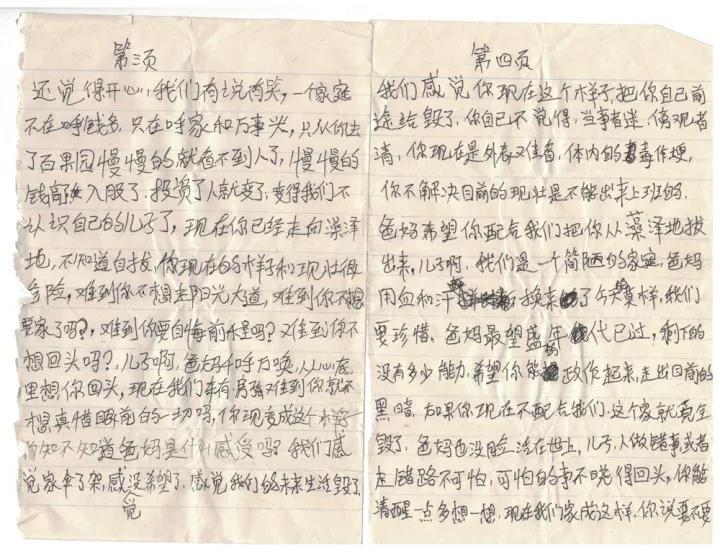 第三页
还觉得开心,我们有说有笑,一个家庭
不在呼钱多,只在呼家和万事兴,只从你去
了百果园慢慢的就看不到人了,慢慢的
钱高入股了,投资了人就变了,变得我们不
认识自己的儿子了,现在你已经走向藻泽
地,不知道自拔,你现在的样子和现壮很
危险,难到你不想走阳光大道,难到你不想
要家了吗?,难到你要自悔前程吗?难到你不
想回头吗?,儿子啊,爸妈千呼万唤,从心底
里想你回头,现在我们车有房有难到你就不
想真惜眼前的一切吗,你现变成这个样子
你知不知道爸妈是什么感受吗?我们感
觉家伞了架,感觉没希望了,感觉我们的未来生活毁了,
第四页
我们感觉你现在这个样子,把你自己前
途给毁了,你自己不觉得,当事者迷,傍观者
清,你现在是外表又佳者,体内的毒作埂,
你不解决目前的现壮是不能出来上班的,
爸妈希望你配合我们把你从藻泽地拔
出来,儿子啊,我们是一个简陋的家庭,爸妈
用血和汗换来了今天的模样,我们
要珍惜,爸妈最望盛年代已过,剩下的
没有多少能力,希望你能政你起来,走出目前的
黑暗,如果你现在不配合我们,这个家就完全
毁了,爸妈也没脸活在世上,儿子,人做错事或者
走错路不可怕,可怕的事不晓得回头,你能
清醒一点多想一想,现在我们家成这样,你说要不要